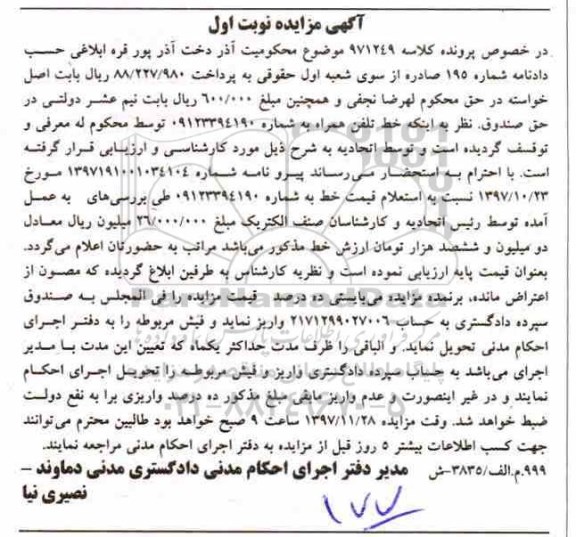 آگهی مزایده نوبت اول
در خصوص پرونده کلاسه ۹۷۱۲۴۹ موضوع محکومیت آذر دخت آذر پور قره ابلاغی حسب
دادنامه شماره ۱۹۵ صادره از سوی شعبه اول حقوقی به پرداخت ۸۸/۲۲۷/۹۸۰ ریال بابت اصل
خواسته در حق محکوم لهرضا نجفی و همچنین مبلغ ۶۰۰/۰۰۰ ریال بابت نیم عشر دولتی در
حق صندوق. نظر به اینکه خط تلفن همراه به شماره ۰۹۱۲۳۳۹۴۱۹۰ توسط محکوم له معرفی و
توقسف گردیده است و توسط اتحادیه به شرح ذیل مورد کارشناسی و ارزیابی قرار گرفته
است. با احترام به استحضار می‌رساند پیرو نامه شماره ۱۳۹۷۱۹۱۰۰۱۰۳۴۱۰۴ مورخ
۱۳۹۷/۱۰/۲۳ نسبت به استعلام قیمت خط به شماره ۰۹۱۲۳۳۹۴۱۹۰ طی بررسی‌های به عمل
آمده توسط رئیس اتحادیه و کارشناسان صنف الکتریک مبلغ ۲۶/۰۰۰/۰۰۰ میلیون ریال معادل
دو میلیون و ششصد هزار تومان ارزش خط مذکور می‌باشد مراتب به حضورتان اعلام می‌گردد.
بعنوان قیمت پایه ارزیابی نموده است و نظریه کارشناس به طرفین ابلاغ گردیده که مصون از
اعتراض مانده، برنده مزایده می‌بایستی ده درصد قیمت مزایده را فی المجلس به صندوق
سپرده دادگستری به حساب ۲۱۷۱۲۹۹۰۲۷۰۰۶ واریز نماید و فیش مربوطه را به دفتر اجرای
احکام مدنی تحویل نماید. و الباقی را ظرف مدت حداکثر یکماه که تعیین این مدت با مدیر
اجرای می‌باشد به حساب سپرده دادگستری واریز و فیش مربوطه را تحویل اجرای احکام
نمایند و در غیر اینصورت و عدم واریز مابقی مبلغ مذکور ده درصد واریزی برا به نفع دولت
ضبط خواهد شد. وقت مزایده ۱۳۹۷/۱۱/۲۸ ساعت ۹ صبح خواهد بود طالبین محترم می‌توانند
جهت کسب اطلاعات بیشتر ۵ روز قبل از مزایده به دفتر اجرای احکام مدنی مراجعه نمایند.
۹۹۹.م.الف/۳۸۳۵-ش مدیر دفتر اجرای احکام مدنی دادگستری مدنی دماوند –
نصیری نیا
۱۷۷
ParsNamadData
۰۲۱-۸۸۳۴۹۶۷۰-۵